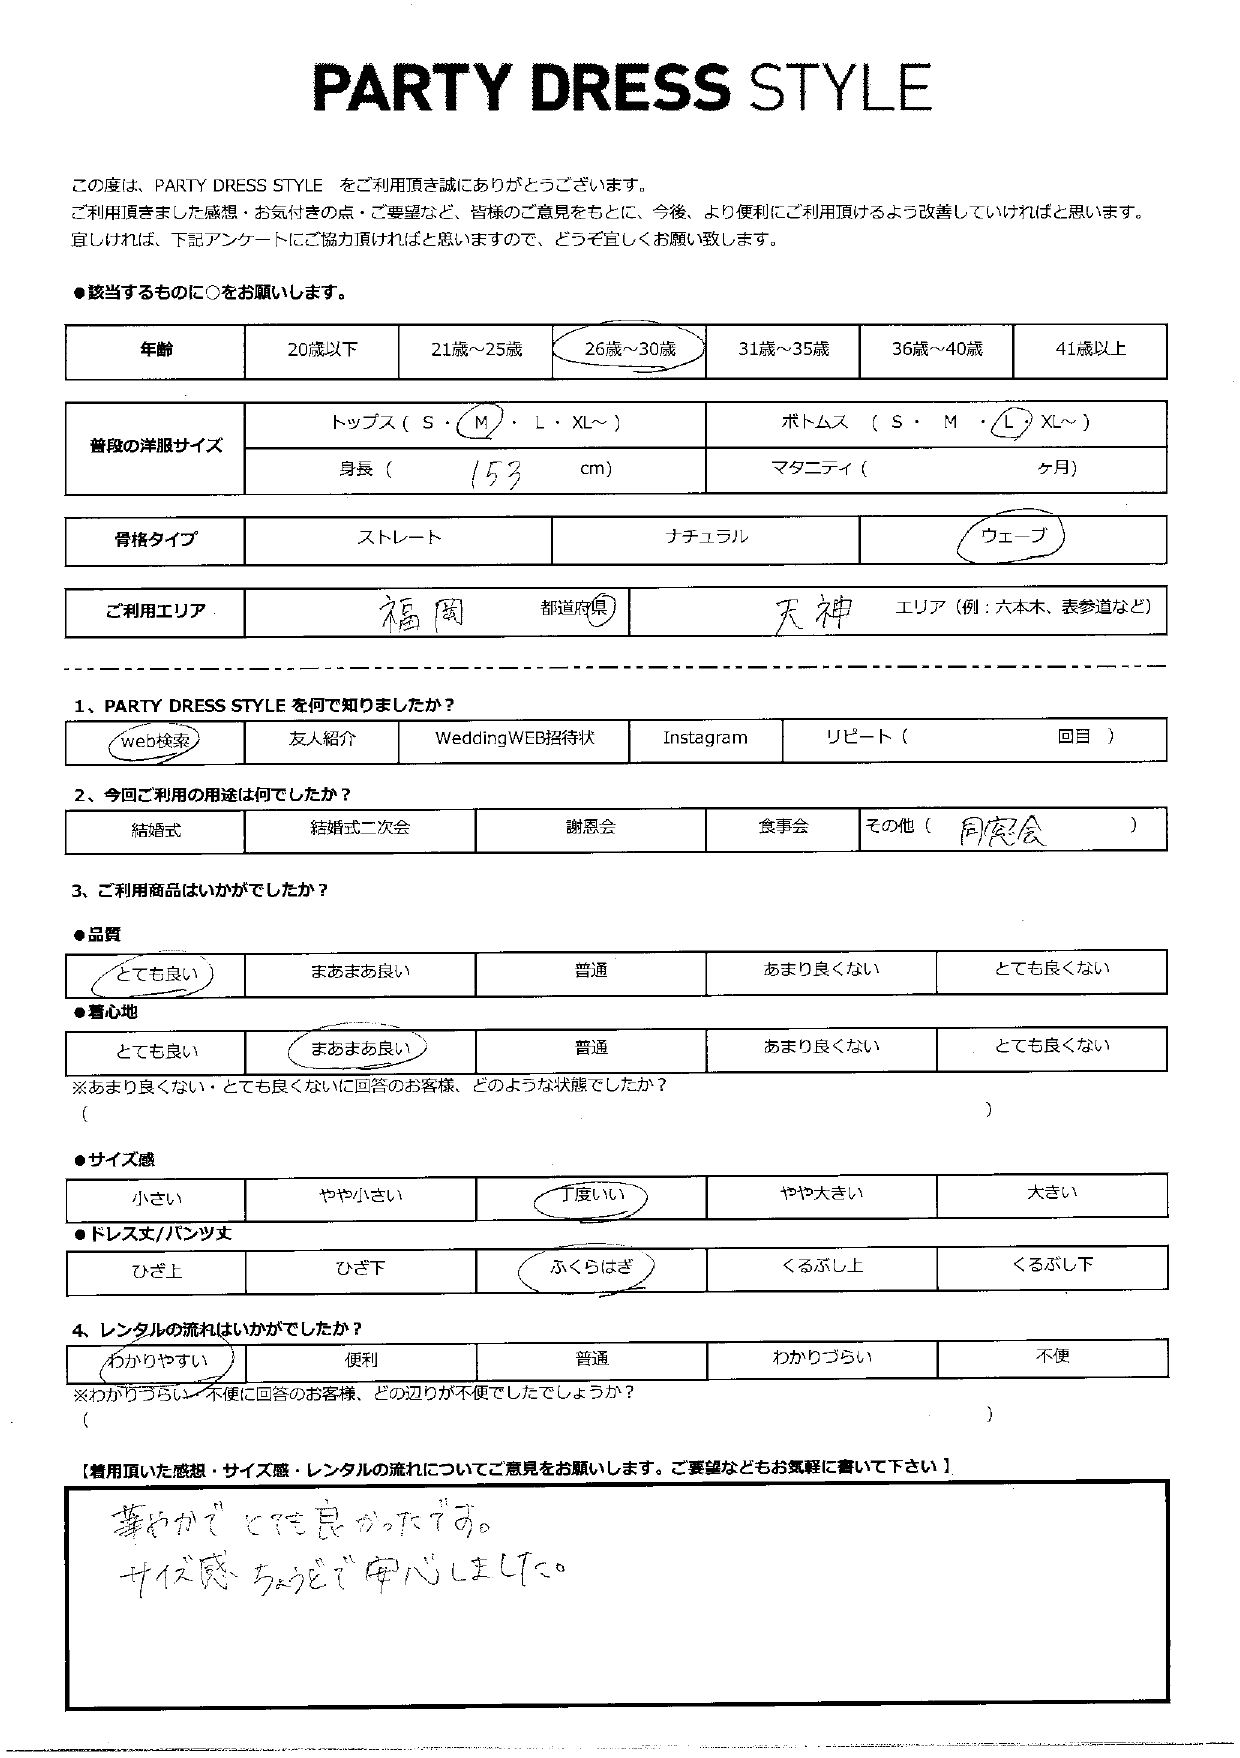 PARTY DRESS STYLE
この度は、PARTY DRESS STYLE をご利用頂き誠にありがとうございます。
ご利用頂きました感想・お気付きの点・ご要望など、皆様のご意見をもとに、今後、より便利にご利用頂けるよう改善していければと思います。
宜しければ、下記アンケートにご協力頂ければと思いますので、どうぞ宜しくお願い致します。
●該当するものに○をお願いします。
年齢 20歳以下 21歳～25歳 26歳～30歳 31歳～35歳 36歳～40歳 41歳以上
普段の洋服サイズ
トップス ( S ・ M ・ L ・ XL～ ) ボトムス ( S ・ M ・ L ・ XL～ )
身長 ( 153 cm) マタニティ ( ヶ月)
骨格タイプ ストレート ナチュラル ウェーブ
ご利用エリア 福岡 都道府県 天神 エリア (例：六本木、表参道など)
1、PARTY DRESS STYLE を何で知りましたか？
web検索 友人紹介 WeddingWEB招待状 Instagram リピート ( 回目 )
2、今回ご利用の用途は何でしたか？
結婚式 結婚式二次会 謝恩会 食事会 その他 ( 同窓会 )
3、ご利用商品はいかがでしたか？
●品質
とても良い まあまあ良い 普通 あまり良くない とても良くない
●着心地
とても良い まあまあ良い 普通 あまり良くない とても良くない
※あまり良くない・とても良くないに回答のお客様、どのような状態でしたか？
( )
●サイズ感
小さい やや小さい 丁度いい やや大きい 大きい
●ドレス丈/パンツ丈
ひざ上 ひざ下 ふくらはぎ くるぶし上 くるぶし下
4、レンタルの流れはいかがでしたか？
わかりやすい 便利 普通 わかりづらい 不便
※わかりづらい・不便に回答のお客様、どの辺りが不便でしたでしょうか？
( )
【着用頂いた感想・サイズ感・レンタルの流れについてご意見をお願いします。ご要望などもお気軽に書いて下さい】
華やかで とても良かったです。
サイズ感 ちょうどで安心しました。